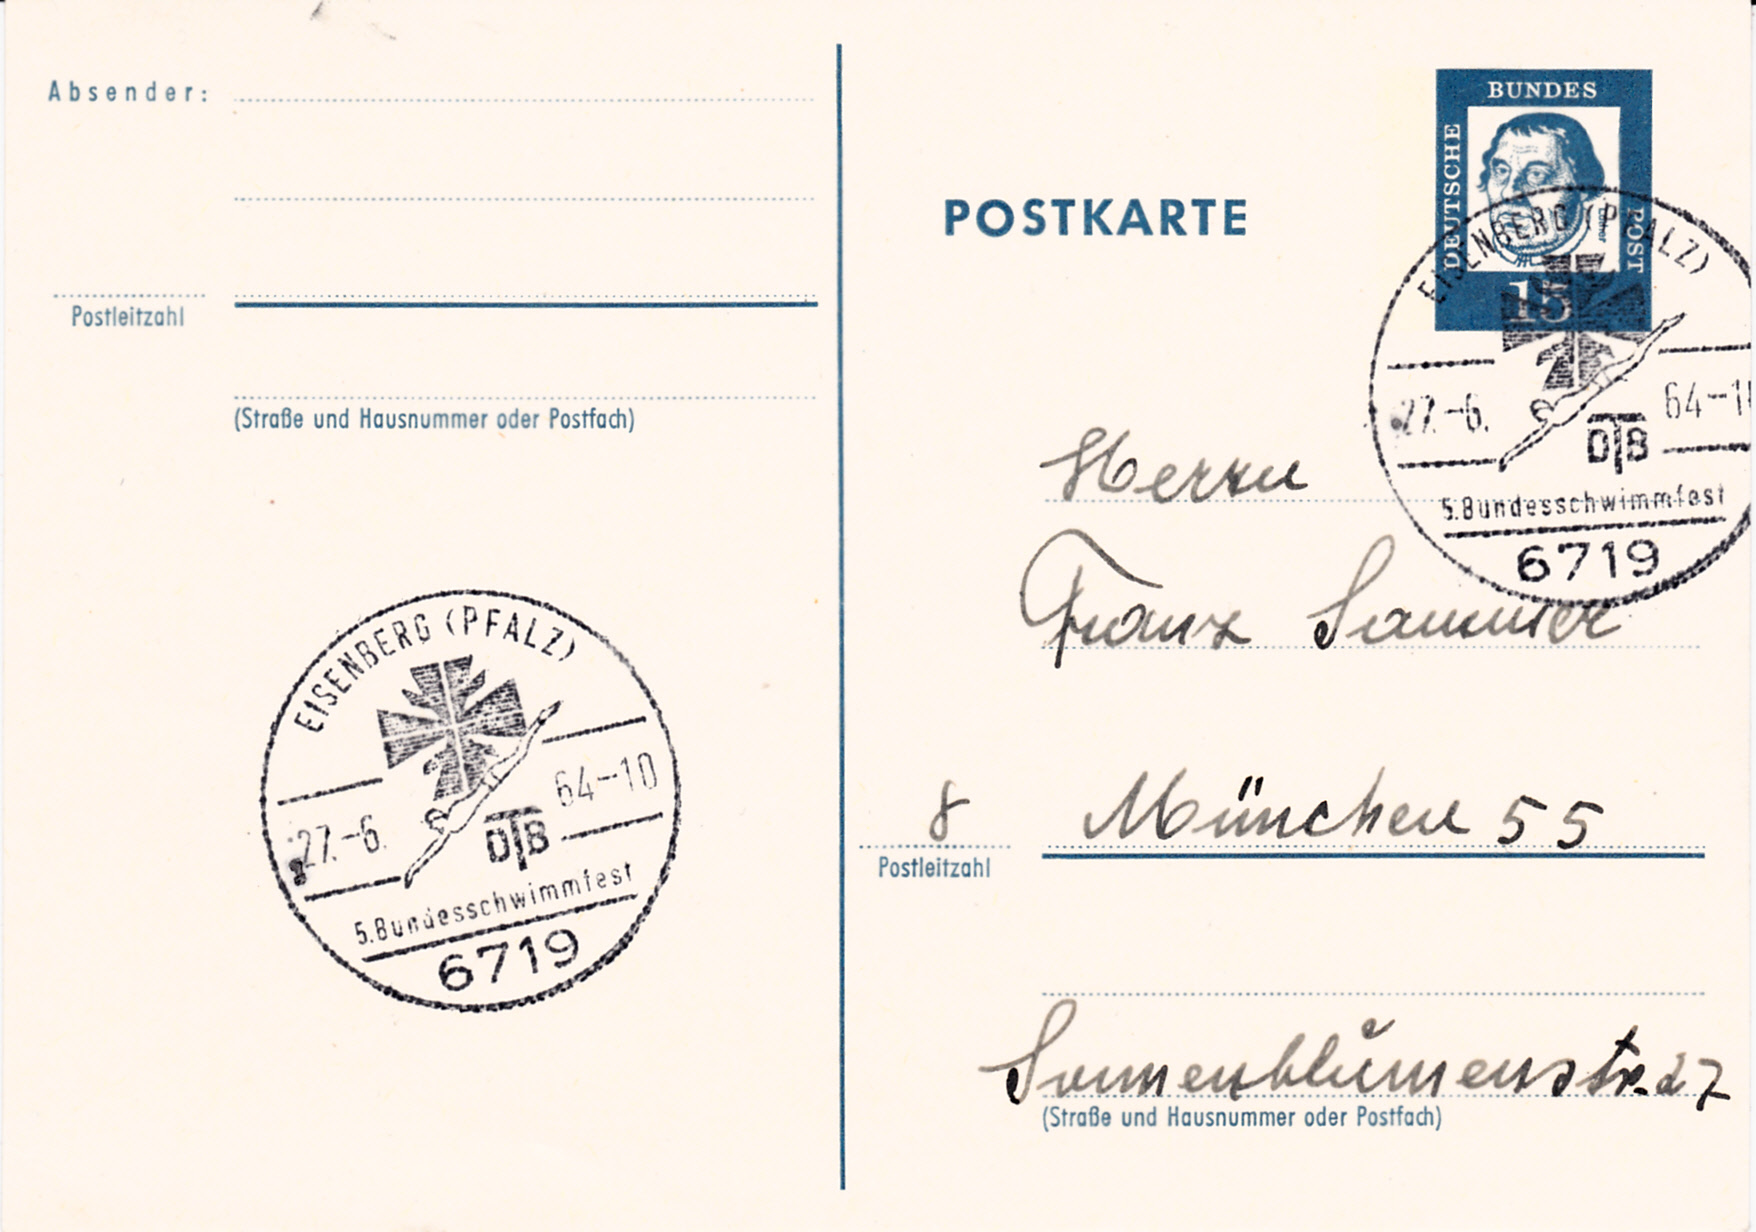 Absender:
Postleitzahl
(Straße und Hausnummer oder Postfach)
EISENBERG (PFALZ)
27.-6.
64-10
DTB
5.Bundesschwimmfest
6719
POSTKARTE
DEUTSCHE
BUNDES
POST
15
EISENBERG (PFALZ)
27.-6.
64-1
DTB
5.Bundesschwimmfest
6719
Herrn
Franz Sammer
8 München 55
Postleitzahl
Sonnenblumenstr. 27
(Straße und Hausnummer oder Postfach)